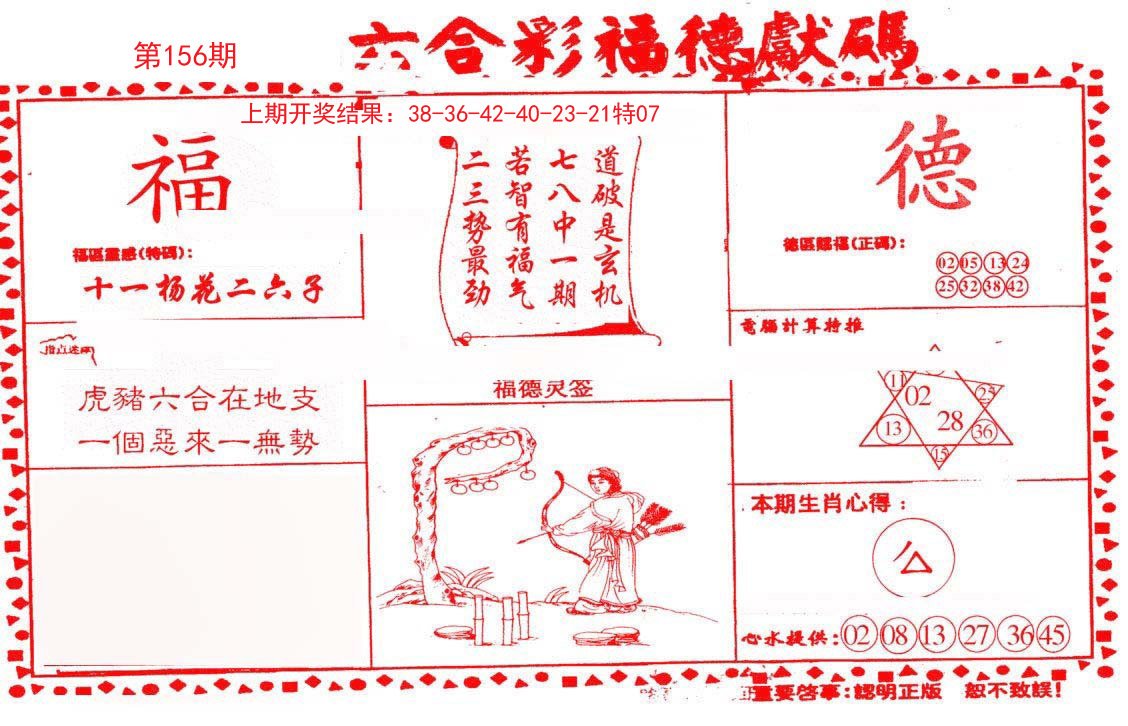 六合彩福德獻碼
第156期
上期开奖结果：38-36-42-40-23-21特07
福
福區靈感(特碼)：
十一杨花二六子
道破是玄机
七八中一期
若智有福气
二三势最劲
德
德區賜福(正碼)：
02 05 13 24
25 32 38 42
指点迷
虎豬六合在地支
一個惡來一無勢
福德灵签
電腦計算特推
11 02 25
13 28 36
15
本期生肖心得：
心水提供：02 08 13 27 36 45
重要啓事：認明正版 恕不致誤！